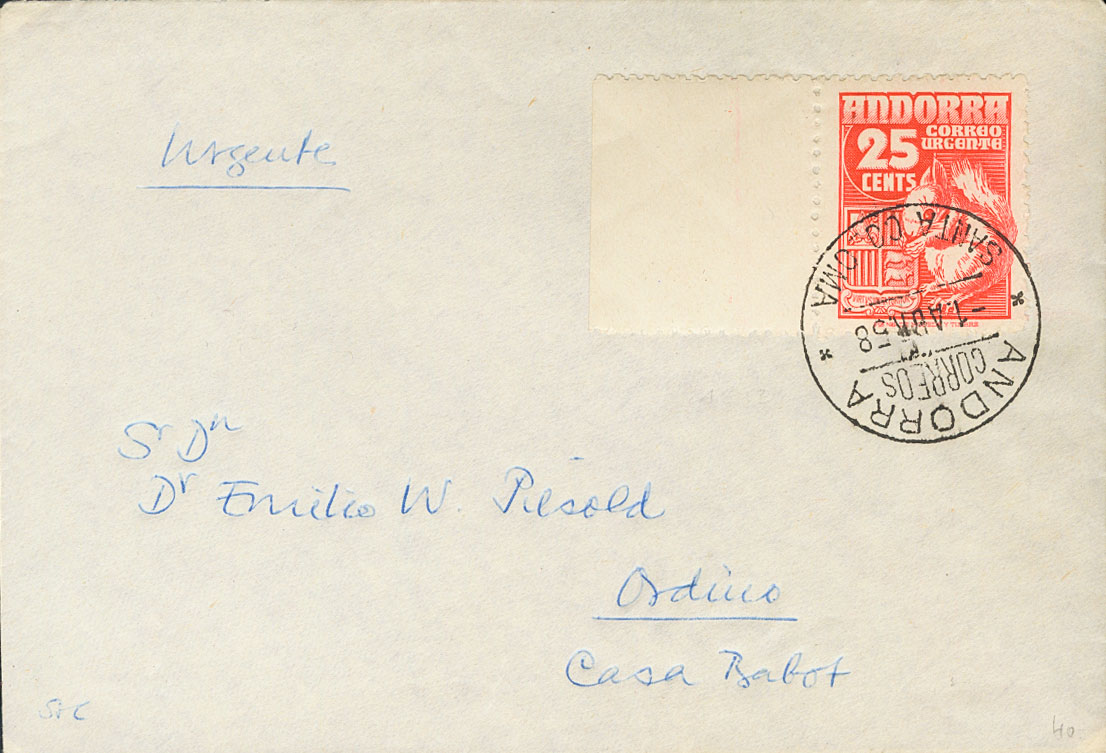 Urgente
ANDORRA
25
CENTS
CORREO
URGENTE
SANTA COLOMA
-1.ABR.58
CORREOS
* ANDORRA *
Sr Dn
Dr Emilio W. Piesold
Ordino
Casa Babot
40